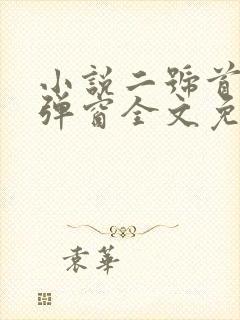 小說二號首
彈窗全文免
袁華